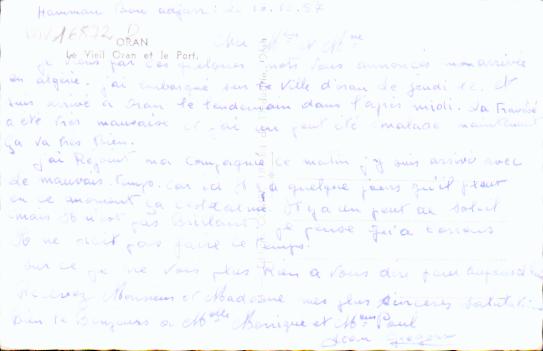 Hammam Bou adjar: le 10.12.57
16572 D
ORAN
Le Vieil Oran et le Port.
Mr et Mme
Je viens par ces quelques mots vous annoncer mon arrivée
en algerie. j'ai embarqué sur le ville d'oran le jeudi et
suis arrivé à oran le lendemain dans l'après midi. La Traversé
a été très mauvaise et j'ai un peut été malade maintenant
ça va très bien.
j'ai Rejoint ma Compagnie ce matin j'y suis arrivé avec
de mauvais temps. Car il y a quelque jours qu'il pleut
en ce moment ça Il y a un peut de soleil
mais Il n'est pas Brillant. je pense qu'a
Il ne doit pas faire ce temps.
Sur ce je ne vous plus Rien a vous dire pour aujourd'hui
Recevez Monsieur et Madame mes plus sincères salutations
bien le Bonjours a Melle Monique et Mr Paul
Jean